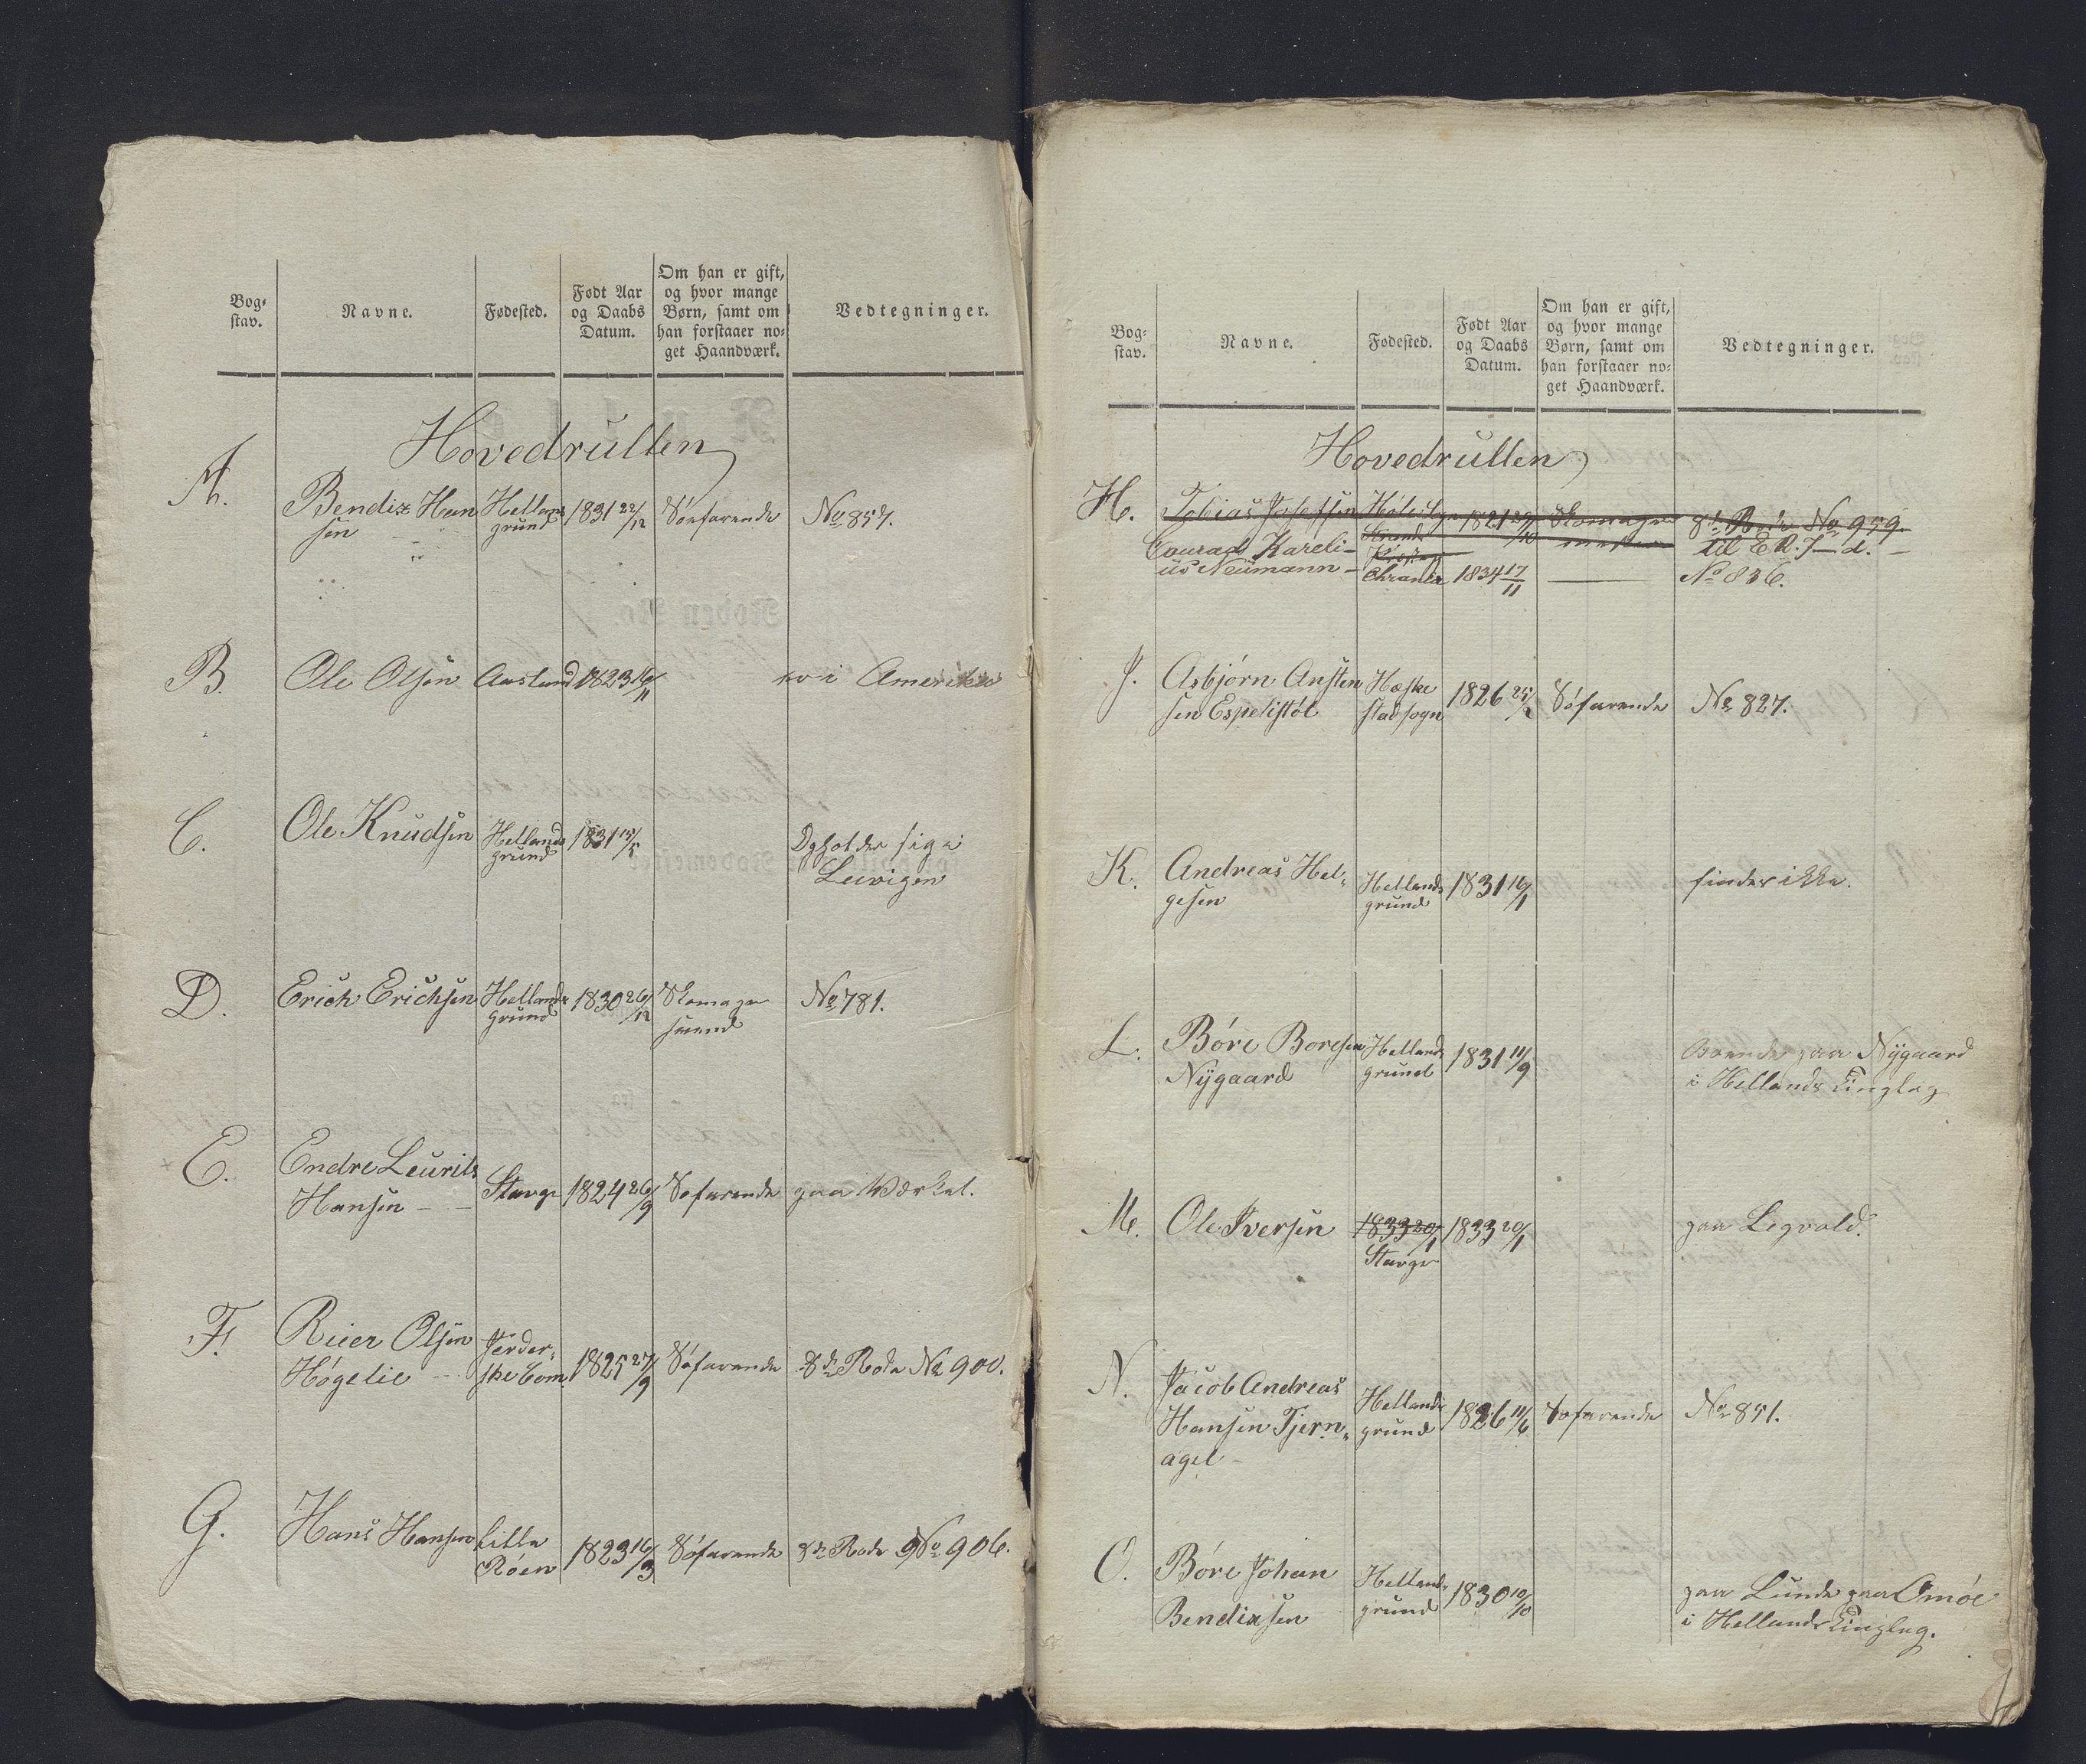 Bog-
stav.
Navne.
Fødested.
Født Aar
og Daabs
Datum.
Om han er gift,
og hvor mange
Børn, samt om
han forstaaer no-
get Haandværk.
Vedtegninger.
Hovedrullen
A.
Bendix Han
sen
Hellands
grund
1831 22/12
Søefarende
No 857.
B
Ole Olsen
Aasland
1823 16/11
i Amerika
C.
Ole Knudsen
Hellands
grund
1831 15/5
Opholder sig i
Leevigen
D.
Erich Erichsen
Hellands
grund
1830 26/12
Skomager
svend
No 781.
E.
Endre Leurits
Hansen
Stavgr
1824 26/9
Søfarende
paa Værket.
F.
Rieer Olsen
Høgelie
Jerder-
ske Com.
1825 27/9
Søfarende
8de Rode No 900.
G.
Hans Hansen
Lille
Røen
1823 16/3
Søfarende
8de Rode No 906.
Bog-
stav.
Navne.
Fødested.
Født Aar
og Daabs
Datum.
Om han er gift,
og hvor mange
Børn, samt om
han forstaaer no-
get Haandværk.
Vedtegninger.
Hovedrullen
H.
Tobias Josefsen
Hole Sogn
1821 29/10
Skomager
8de Rode No 959.
Strands
til E. R. J d.
Conrad Kareli-
us Neümann
Chrania
1834 17/11
No 836.
J.
Asbjørn Ansten
sen Espelistøl
Hæske
stad sogn
1826 25/2
Søfarende
No 827.
K.
Andreas Hel-
gesen
Hellands
grund
1831 16/1
findes ikke.
L.
Børe Boresen
Nÿgaard
Hellands
grund
1831 11/9
Boende paa Nÿgaard
i Hellands Tinglag
M.
Ole Iversen
1833 20/1
Stavgr
1833 20/1
paa Legvold.
N.
Jacob Andreas
Hansen Tjern-
agel
Hellands
grund
1826 11/6
Søfarende
No 851.
O.
Børe Johan
Bendixsen
Hellands
grund
1830 10/10
paa Lunde paa Omøe
i Hellands Tinglag.